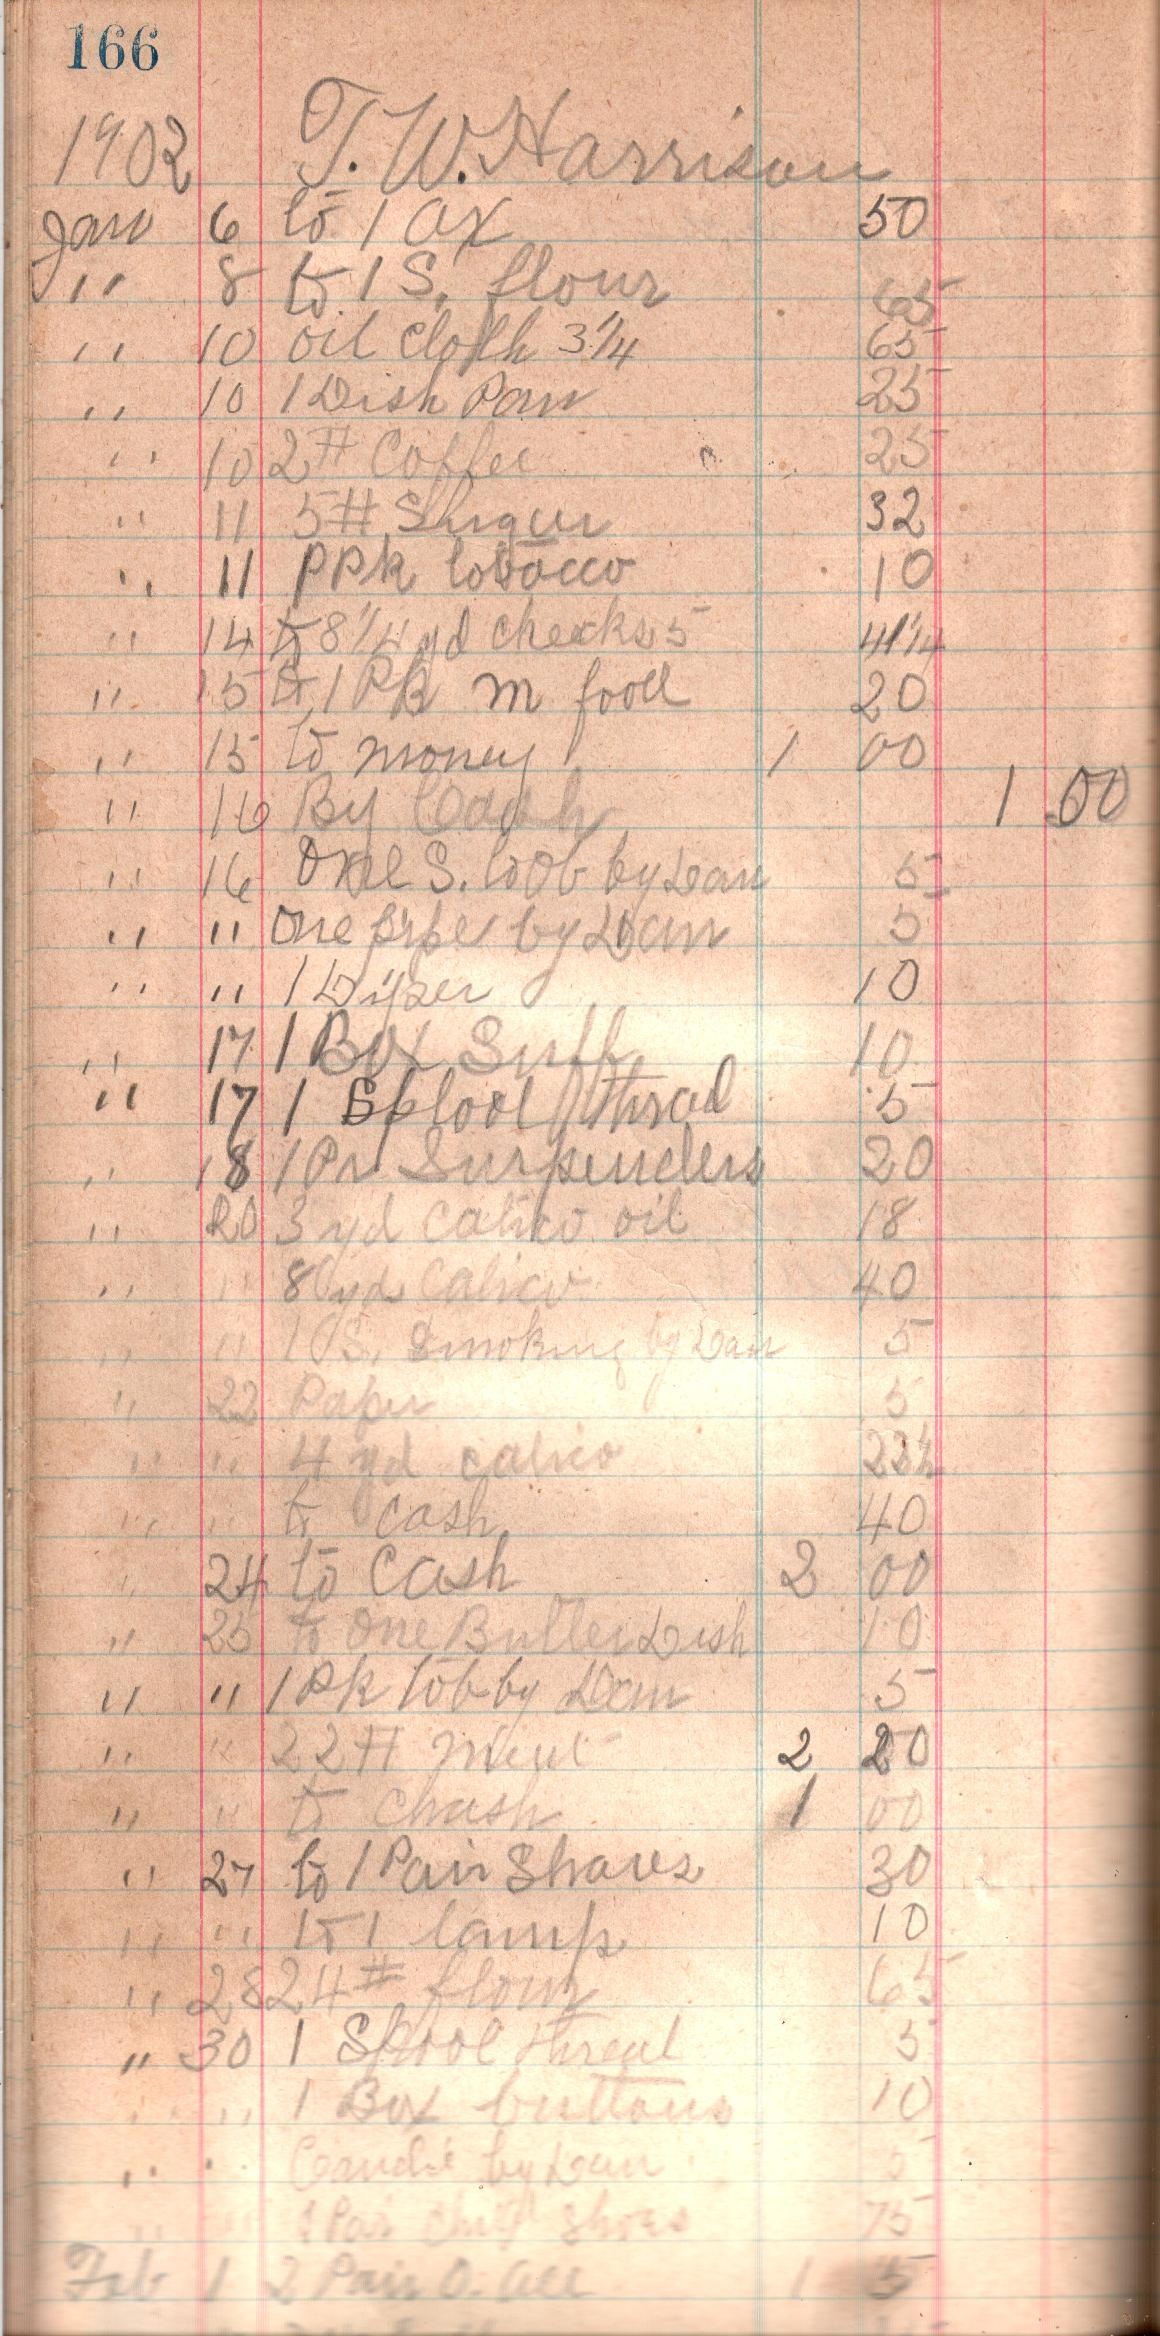 166
1902 T. W. Harrison
Jan 6 to 1 Ax 50
" 8 to 1 S. flour 65
" 10 oil cloth 3 1/4 65
" 10 1 Dish Pan 25
" 10 2# Coffee 25
" 11 5# Shugur 32
" 11 PPk tobacco 10
" 14 to 8 1/4 yd checks 5 41 1/4
" 15 to 1 PK m food 20
" 15 to money 1 00
" 16 By Cash 1 00
" 16 One S. tob by Dan 5
" " One pipe by Dan 5
" " 1 10
" 17 1 Box Snuff 10
" 17 1 Splool thrad 5
" 18 1 Pr Surpenders 20
" 20 3 yd calico oil 18
" " 8 yds Calico 40
" " 1 S. Smoking by Dan 5
" 22 Paper 5
" " 4 yd calico 22 1/2
" " to Cash 40
" 24 to Cash 2 00
" 25 to One Butter Dish 10
" " 1 Pk tob by Dan 5
" " 22# meat 2 20
" " to chash 1 00
" 27 to 1 Pair Shares 30
" " to 1 lamp 10
" 28 24# flour 65
" 30 1 Spool thread 5
" " 1 Box buttons 10
" " Candie by Dan 5
" " 1 Pair shoes 75
Feb 1 2 Pair O. all 1 5